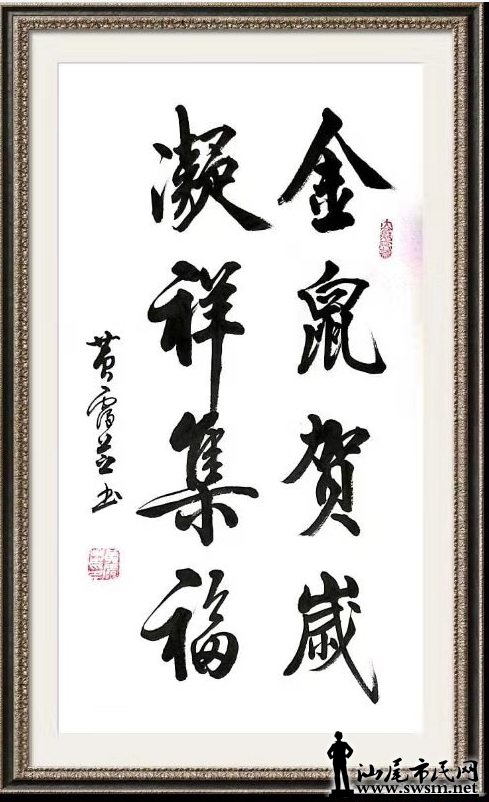 金鼠贺岁
凝祥集福
黄霄芸书
汕尾市民网
www.swsm.net